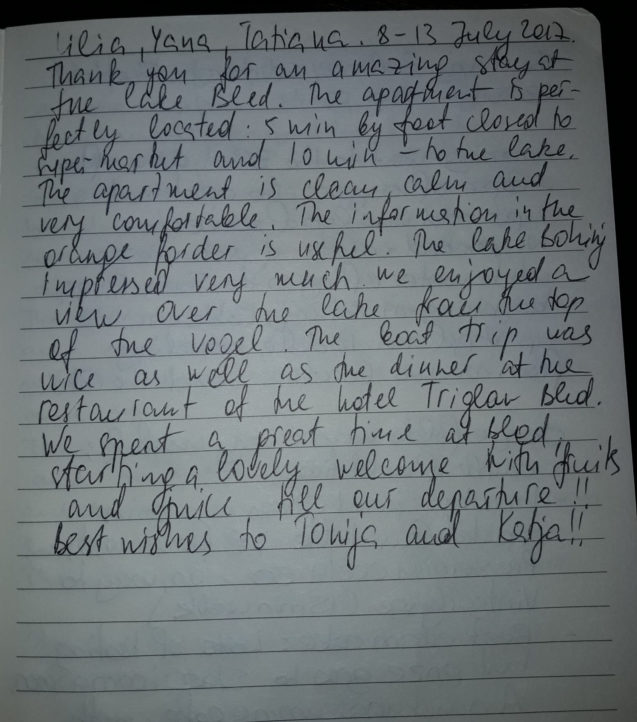 Lilia, Yana, Tatiana. 8-13 July 2017.
Thank you for an amazing stay at
the lake Bled. The apartment is per-
fectly located: 5 min by foot closed to
supermarket and 10 min - to the lake.
The apartment is clean, calm and
very comfortable. The information in the
orange forder is useful. The lake Bohinj
impressed very much. we enjoyed a
view over the lake from the top
of the Vogel. The boat trip was
nice as well as the dinner at the
restaurant of the hotel Triglav Bled.
We spent a great time at bled,
starting a lovely welcome with fruits
and juice till our departure!!
best wishes to Tonija and Katja!!